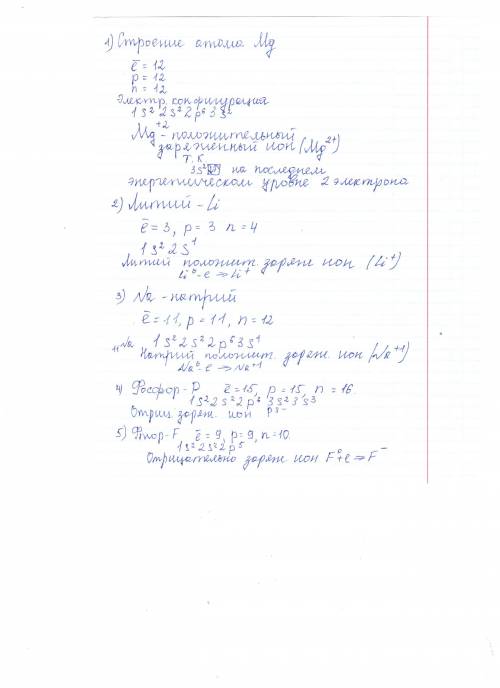 1) Строение атома Mg
ē = 12
p = 12
n = 12
Электр. конфигурация
1s² 2s² 2p⁶ 3s²
Mg⁺² - положительный
заряженный ион (Mg²⁺)
т. к
3s² на последнем
энергетическом уровне 2 электрона
2) Литий - Li
ē = 3, p = 3 n = 4
1s² 2s¹
Литий положит. заряж ион (Li⁺)
Li⁰ - e ⇒ Li⁺
3) Na - натрий
ē = 11, p = 11, n = 12
₁₁Na 1s² 2s² 2p⁶ 3s¹
Натрий положит. заряж. ион (Na⁺¹)
Na⁰ - e ⇒ Na⁺¹
4) Фосфор - P ē = 15, p = 15, n = 16.
1s² 2s² 2p⁶ 3s² 3s³
Отриц. заряж. ион p³⁻
5) Фтор - F ē = 9, p = 9, n = 10.
1s² 2s² 2p⁵
Отрицательно заряж ион. F⁰ + e ⇒ F⁻